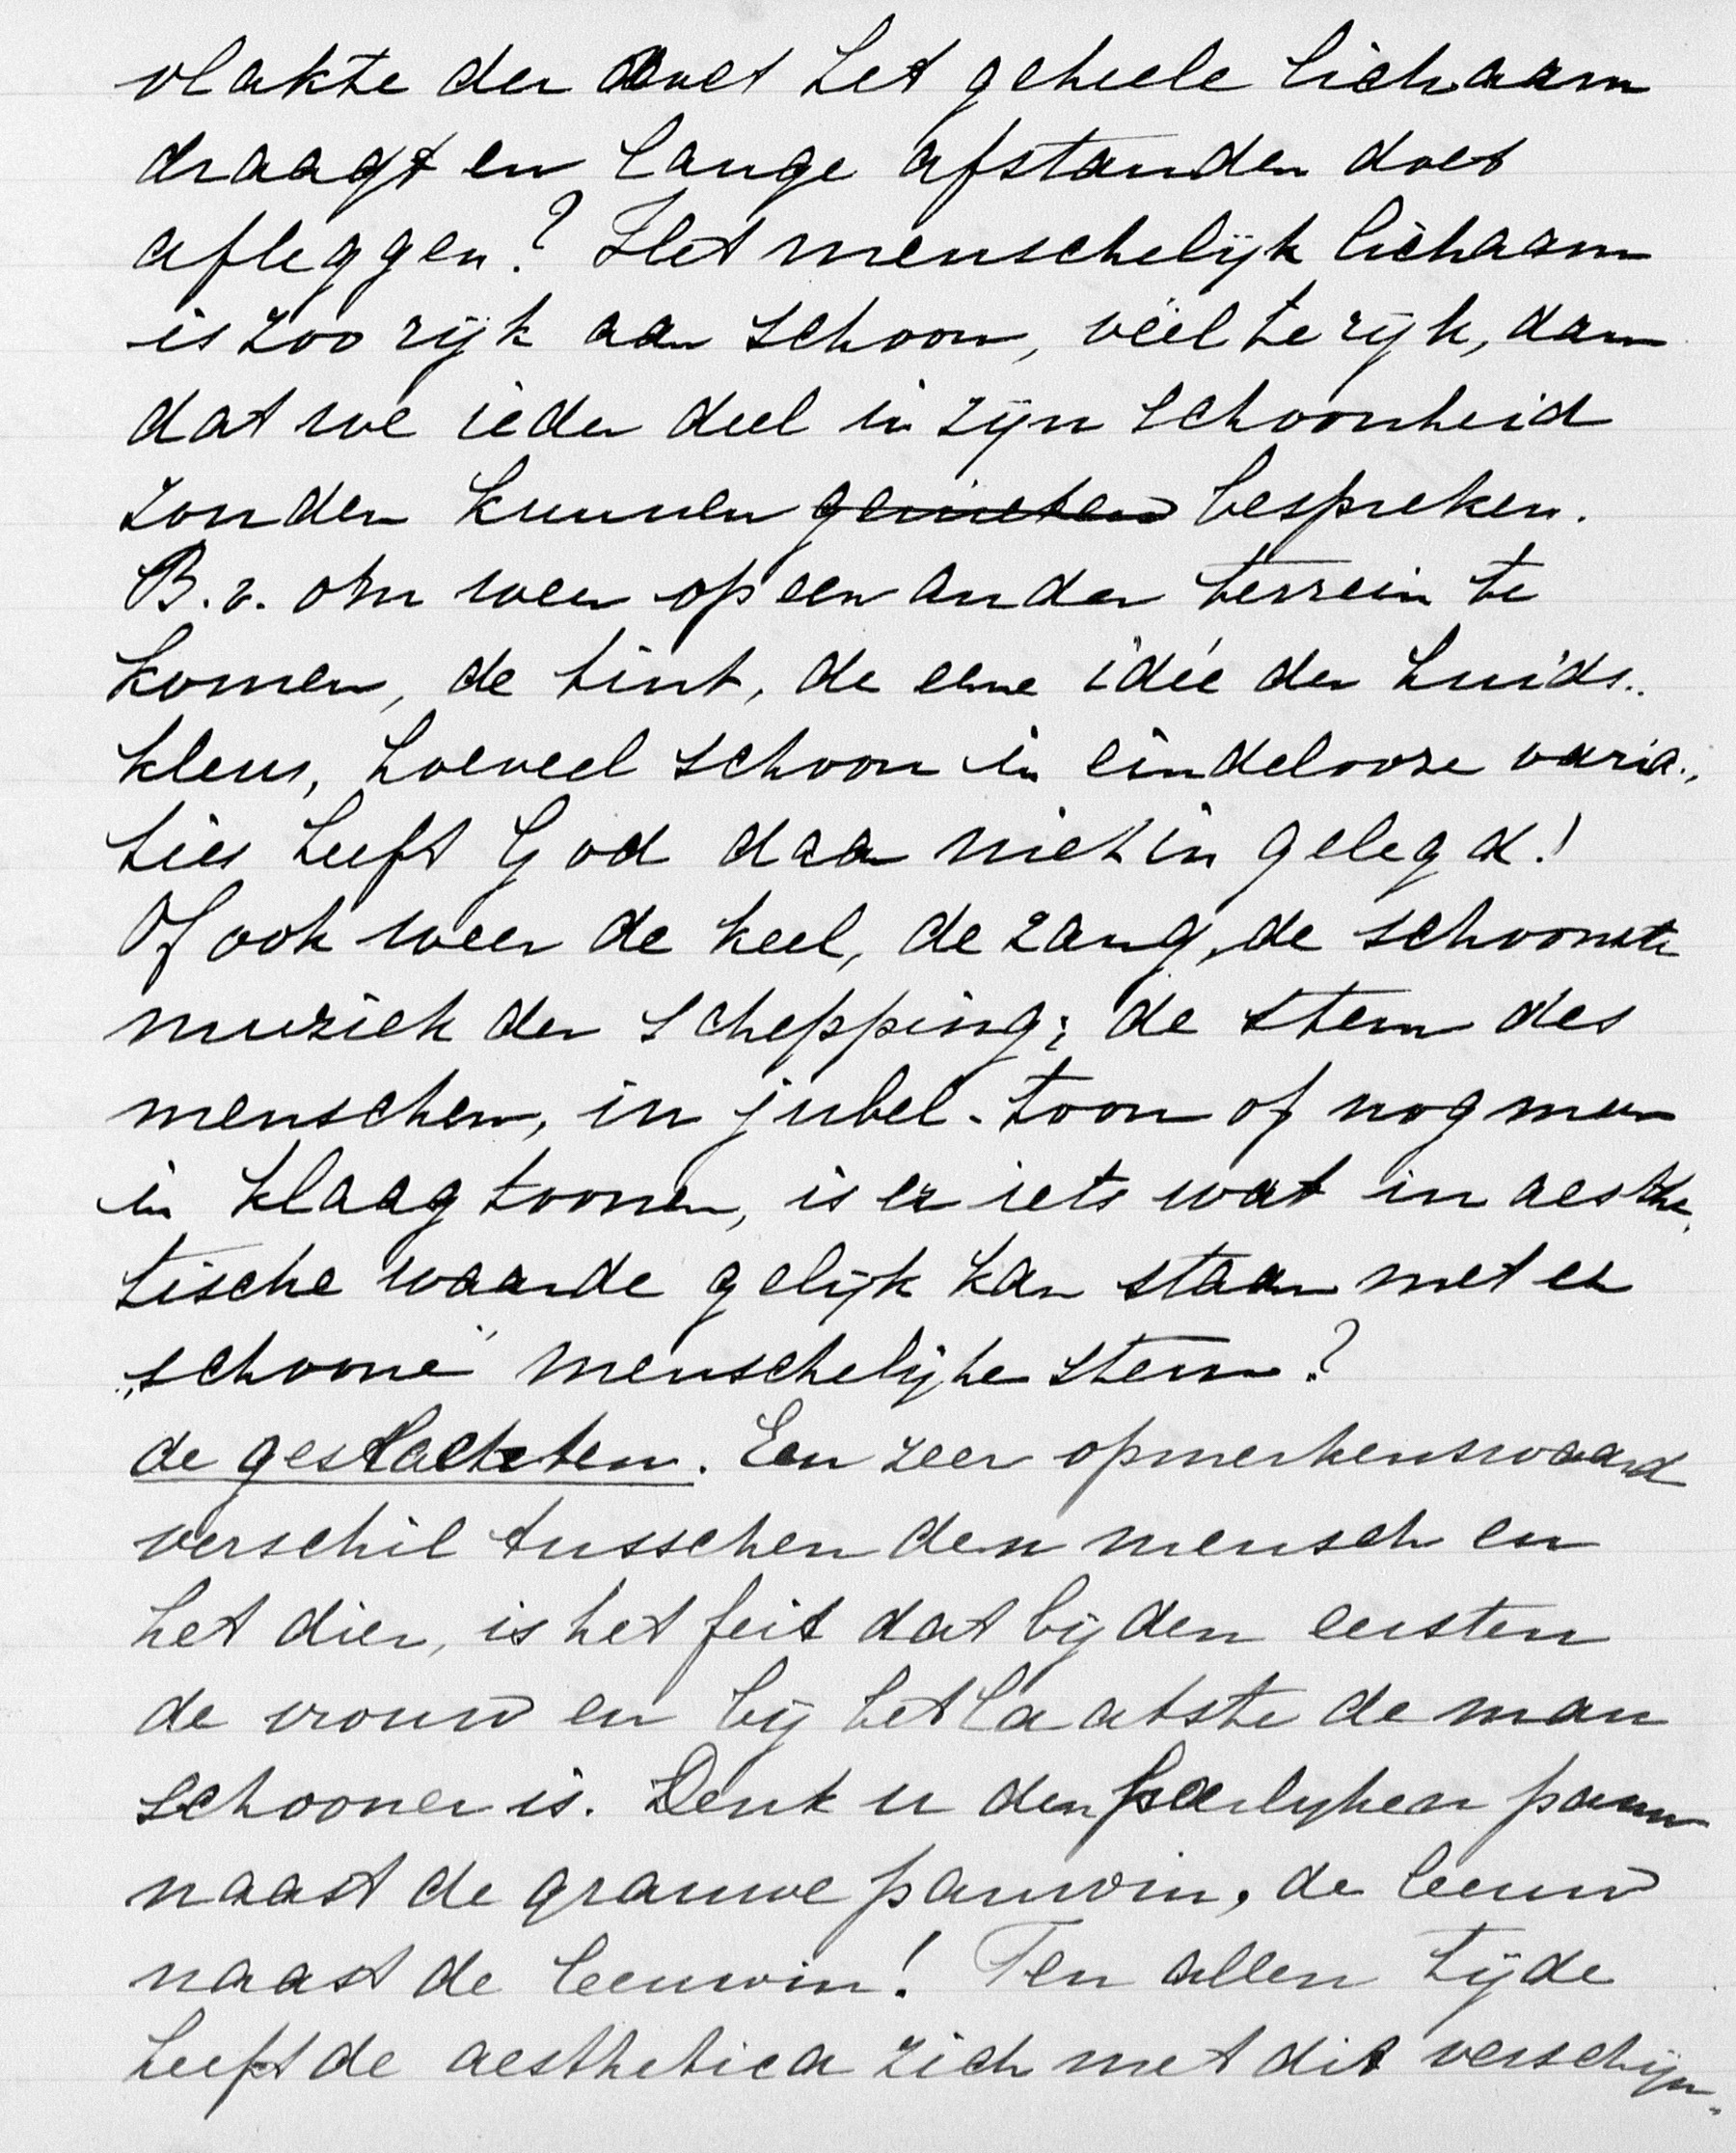 vlakte der voet het geheele lichaam
draagt en lange afstanden doet
afleggen? Het menschelijk lichaam
is zoo rijk aan schoon, véél te rijk, dan
dat we ieder deel in zijn schoonheid
zouden kunnen genieten bespreken.
B.v. om weer op een ander terrein te
komen, de tint, de eene idée der huids-
kleur, hoeveel schoon in eindelooze varia-
ties heeft God daar niet in gelegd!
Of ook weer de keel, de zang, de schoonste
muziek der schepping; de stem des
menschen, in jubel-toon of nog meer
in klaagtoonen, is er iets wat in aesthe-
tische waarde gelijk kan staan met een
„schoone" menschelijke stem?
de geslachten. Een zeer opmerkenswaard
verschil tusschen den mensch en
het dier, is het feit dat bij den eersten
de vrouw en bij het laatste de man
schooner is. Denk u den heerlijken pauw
naast de grauwe pauwin, de leeuw
naast de leeuwin! Ten allen tijde
heeft de aesthetica zich met dit verschijn-